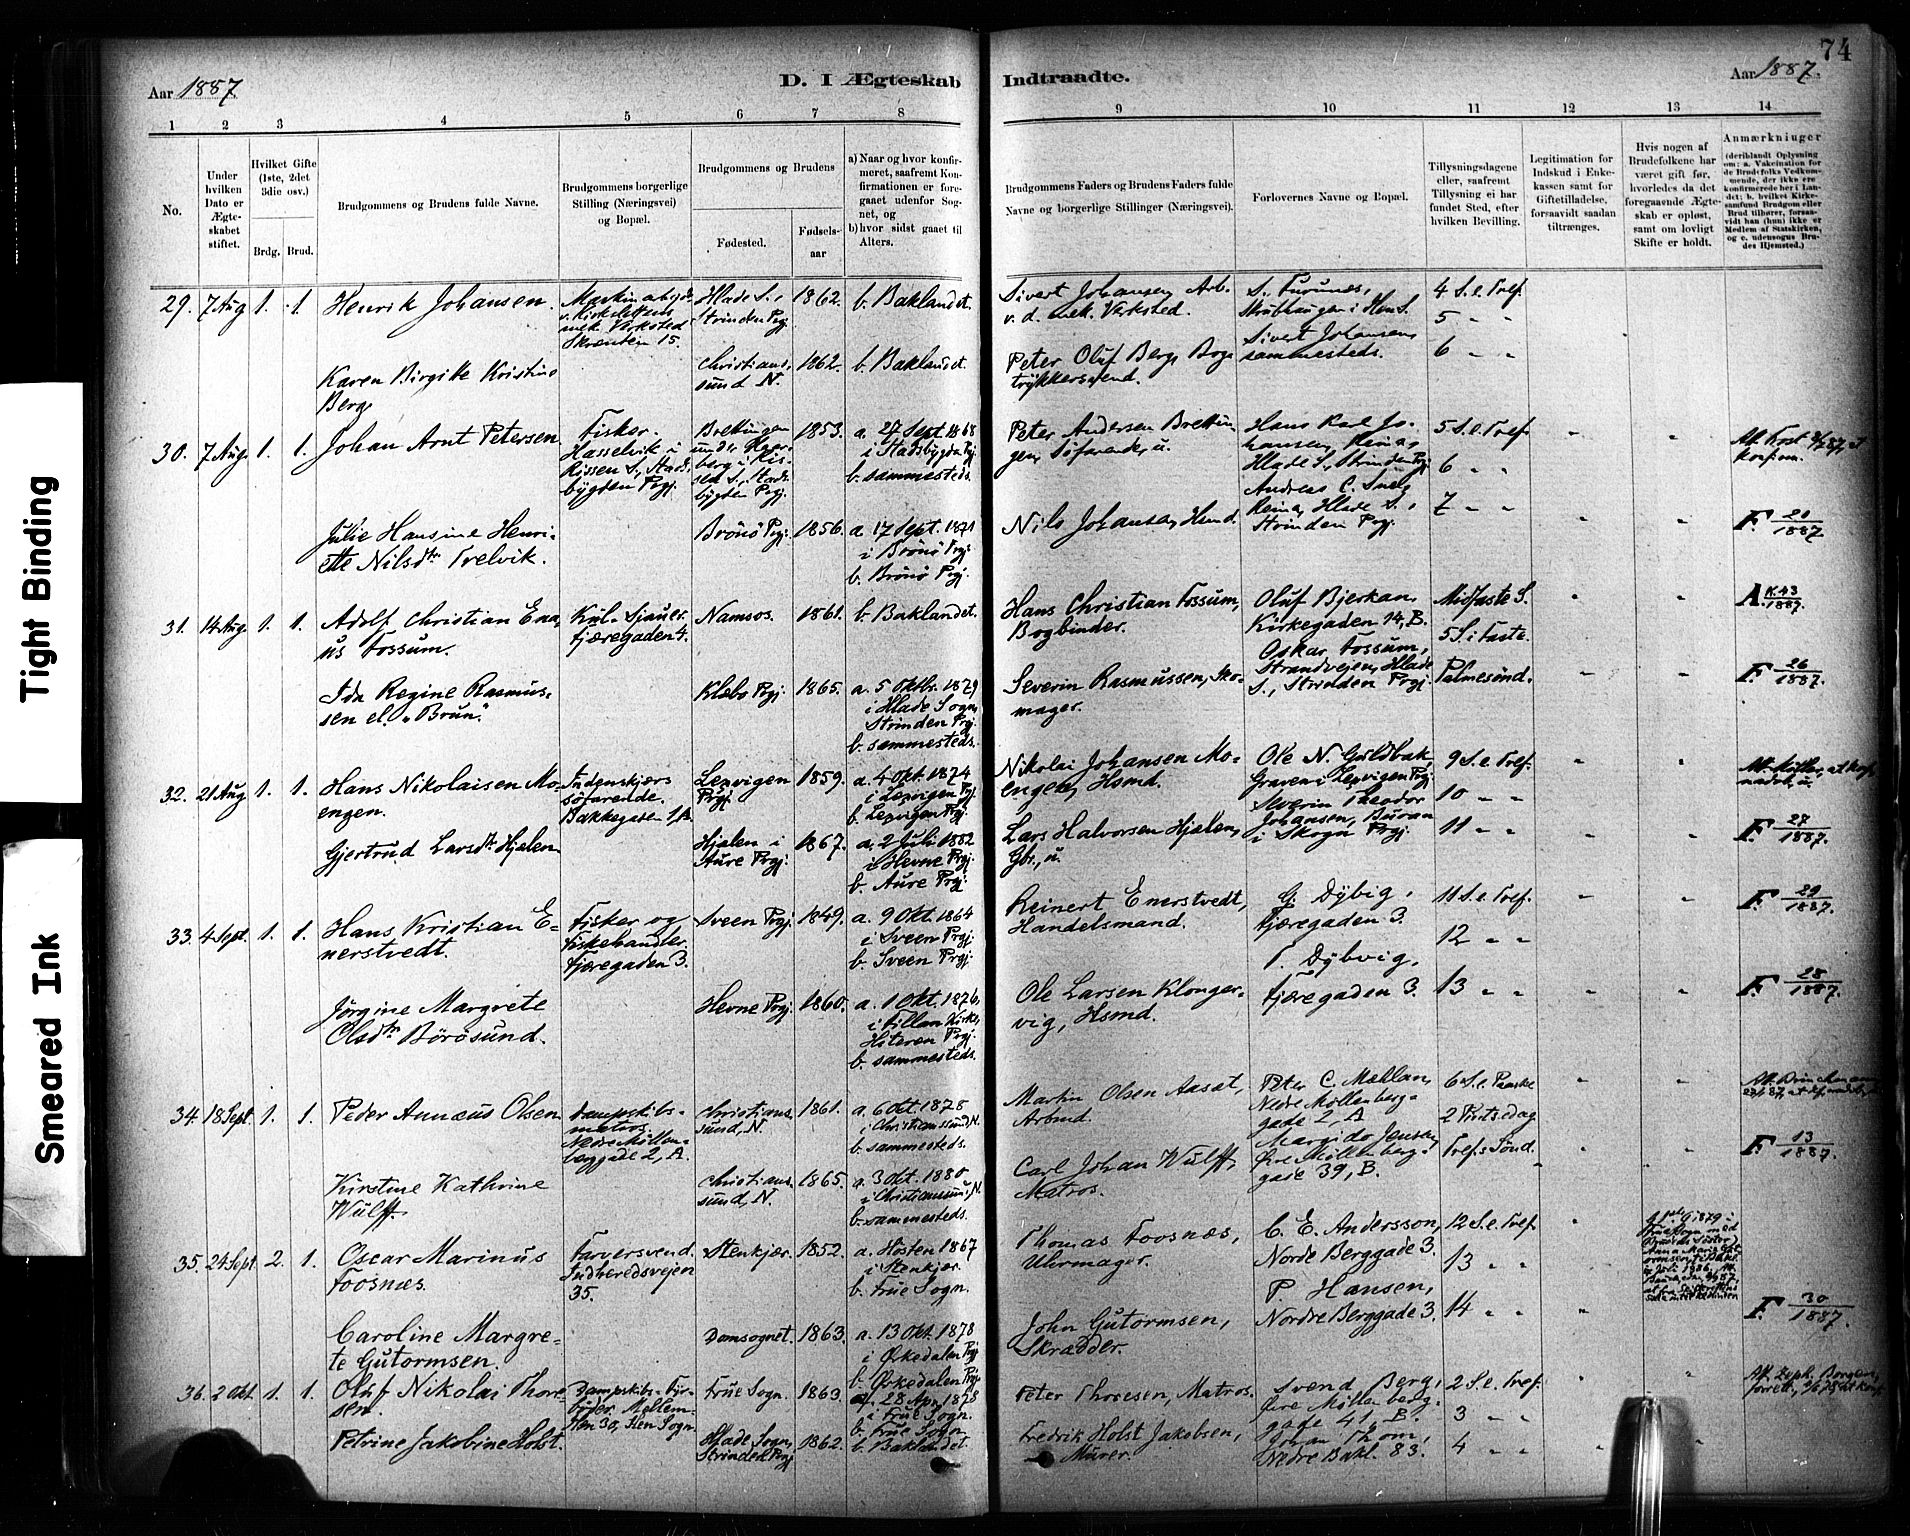 74
Aar 1887
D. I Ægteskab
Indtraadte.
Aar 1887.
1 2 3 4 5 6 7 8
9 10 11 12 13 14
No.
Under hvilken Dato er Ægteskabet stiftet.
Hvilket Gifte (1ste, 2det 3die osv.)
Brdg. Brud.
Brudgommens og Brudens fulde Navne.
Brudgommens borgerlige Stilling (Næringsvei) og Bopæl.
Brudgommens og Brudens
Fødested.
Fødselsaar
a) Naar og hvor konfirmeret, saafremt Konfirmationen er foregaaet udenfor Sognet, og
b) hvor sidst gaaet til Alters.
Brudgommens Faders og Brudens Faders fulde Navne og borgerlige Stillinger (Næringsvei).
Forlovernes Navne og Bopæl.
Tillysningsdagene eller, saafremt Tillysning ei har fundet Sted, efter hvilken Bevilling.
Legitimation for Indskud i Enkekassen samt for Giftetilladelse, forsaavidt saadan tiltrænges.
Hvis nogen af Brudefolkene har været gift før, hvorledes da det foregaaende Ægteskab er opløst, samt om lovligt Skifte er holdt.
Anmærkninger
(deriblandt Oplysning om: a. Vakcination for de Brudefolks Vedkommende, der ikke er konfirmerede her i Landet; b. hvilket Kirkesamfund Brudgom eller Brud tilhører, forsaavidt han (hun) ikke er Medlem af Statskirken, og c. udensogns Brudes Hjemsted.)
29. 7 Aug 1. 1 Henrik Johansen.
Skrænten 15.
Hlade S., Strinden Prgj.
1862. b. Baklandet.
Sivert Johansen, Arb. v. d. mek. Verksted.
S. Furunes,
Sivert Johansen, sammesteds.
4 S. e. Tref.
5 " "
6 " "
Karen Birgitte Kristine Berg
Christianssund N. 1862. b. Baklandet.
Peter Oluf Berg, Bogtrykkersvend.
30. 7 Aug. 1. 1. Johan Arnt Petersen
Fisker. Hasselvik i Rissen S., Stadsbygden Prgj.
1853. a. 27 Sept. 1868 i Stadsbygden Prgj.
b. sammesteds.
Peter Andersen Brettingen, Søfarende, u.
Hans Karl Johansen, Reina, Hlade S., Strinden Prgj.
5 S. e. Tref.
6 " "
7 " "
Julie Hansine Henriette Nilsdtr Trelvik.
Brönö Prgj. 1856. a. 17 Sept. 1871 i Brönö Prgj.
b. Brönö Prgj.
Nils Johansen, Hsmd.
Reina, Hlade S., Strinden Prgj.
F. 20/1887
31. 14 Aug. 1. 1. Adolf Christian Enaus Fossum.
Kul-Sjauer. Fjæregaden 4.
Namsos. 1861. b. Baklandet.
Hans Christian Fossum, Bogbinder.
Oluf Bjerkan, Kirkegaden 14, B.
Oskar Fossum, Strandvejen, Hlade S., Strinden Prgj.
Midfaste S.
5 S. i Faste.
Palmesönd.
A. K. 43/1887.
Ida Regine Rasmussen el. "Brun".
Klæbo Prgj. 1865. a. 5 Oktbr. 1879 i Hlade Sogn, Strinden Prgj.
b. sammesteds.
Severin Rasmussen, Skomager.
F. 26/1887.
32. 21 Aug 1. 1. Hans Nikolaisen Moengen.
Indenskjærs søfarende. Bakkegaden 1, A.
Lexvigen Prgj. 1859. a. 4 Okt. 1874 i Lexvigen Prgj.
b. Lexvigen Prgj.
Nikolai Johansen Moengen, Hsmd.
Ole N. Guldbak, Graven i Lexvigen Prgj.
Severin Theodor Johansen, Buran i Skogn Prgj.
9 S. e. Tref.
10 " "
11 " "
Gjertrud Larsdtr Hjelen
Hjelen i Aure Prgj. 1867. a. 2 Juli 1882 i Hevne Prgj.
b. Aure Prgj.
Lars Halvorsen Hjelen, Gbr., u.
F. 27/1887.
33. 4 Sept. 1. 1. Hans Kristian Enerstvedt.
Fisker og Fiskehandler. Fjæregaden 3.
Sveen Prgj. 1849. a. 9 Okt. 1864 i Sveen Prgj.
b. Sveen Prgj.
Reinert Enerstvedt, Handelsmand.
G. Dybig, Fjæregaden 3.
T. Dybvig, Fjæregaden 3.
11 S. e. Tref.
12 " "
13 " "
F. 29/1887.
Jørgine Margrete Olsdtr Börösund.
Hevne Prgj. 1860. a. 1 Okt. 1876, i Fillan Kirke, Hiteren Prgj.
b. sammesteds.
Ole Larsen Klongervig, Hsmd.
F. 28/1887.
34. 18 Sept. 1. 1. Peder Annæus Olsen
Dampskibsmatros. Nedre Møllenberggade 2, A.
Christianssund, N. 1861. a. 6 Okt. 1878 i Christianssund N.
b. sammesteds.
Martin Olsen Aasat, Arbmd.
Peter C. Mæhlan, Nedre Møllenberggade 2, A
Margido Jensen, Øvre Møllenberggade 39, B.
6 S. e. Paaske
2 Pintsedag
Tref. Sönd.
Kirstine Kathrine Wulff.
Christianssund, N. 1865. a. 3 Okt. 1880 i Christianssund, N.
b. sammesteds.
Carl Johan Wulff, Matros.
F. 13/1887.
35. 24 Sept. 2. 1. Oscar Marinus Foosnæs.
Farversvend. Indherredsvejen 35.
Stenkjær. 1852. a. Hösten 1867 i Stenkjær.
b. Frue Sogn.
Thomas Foosnæs, Uhrmager.
C. E. Andersson, Nordre Berggade 3.
P. Hansen, Nordre Berggade 3.
12 S. e. Tref.
13 " "
14 " "
Caroline Margrete Gutormsen.
Domsognet. 1863. a. 13 Okt. 1878 i Ørkedalen Prgj
b. Ørkedalen Prgj
John Gutormsen, Skrædder.
F. 30/1887.
36. 2 Okt. 1. 1. Oluf Nikolai Thoresen.
Frue Sogn. 1863. a. 28 Apr. 1878 i Frue Sogn.
b. Frue Sogn.
Peter Thoresen, Matros.
Svend Berg, Øvre Møllenberggade 41, B.
Johan Thom, Nedre Bakl. 83.
2 S. e. Tref.
3 " "
4 " "
Petrine Jakobine Holst.
Hlade Sogn, Strinden Prgj 1862. b. Baklandet.
Fredrik Holst Jakobsen, Murer.
Tight Binding
Smeared Ink